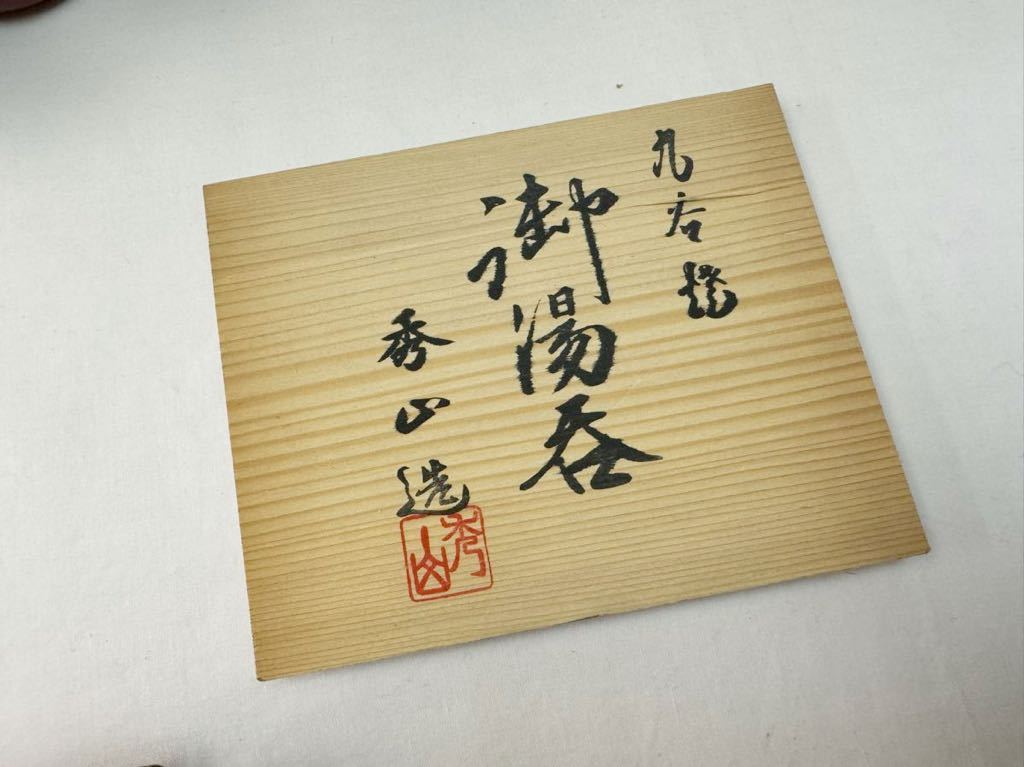 九谷焼
御湯呑
秀山造
秀山